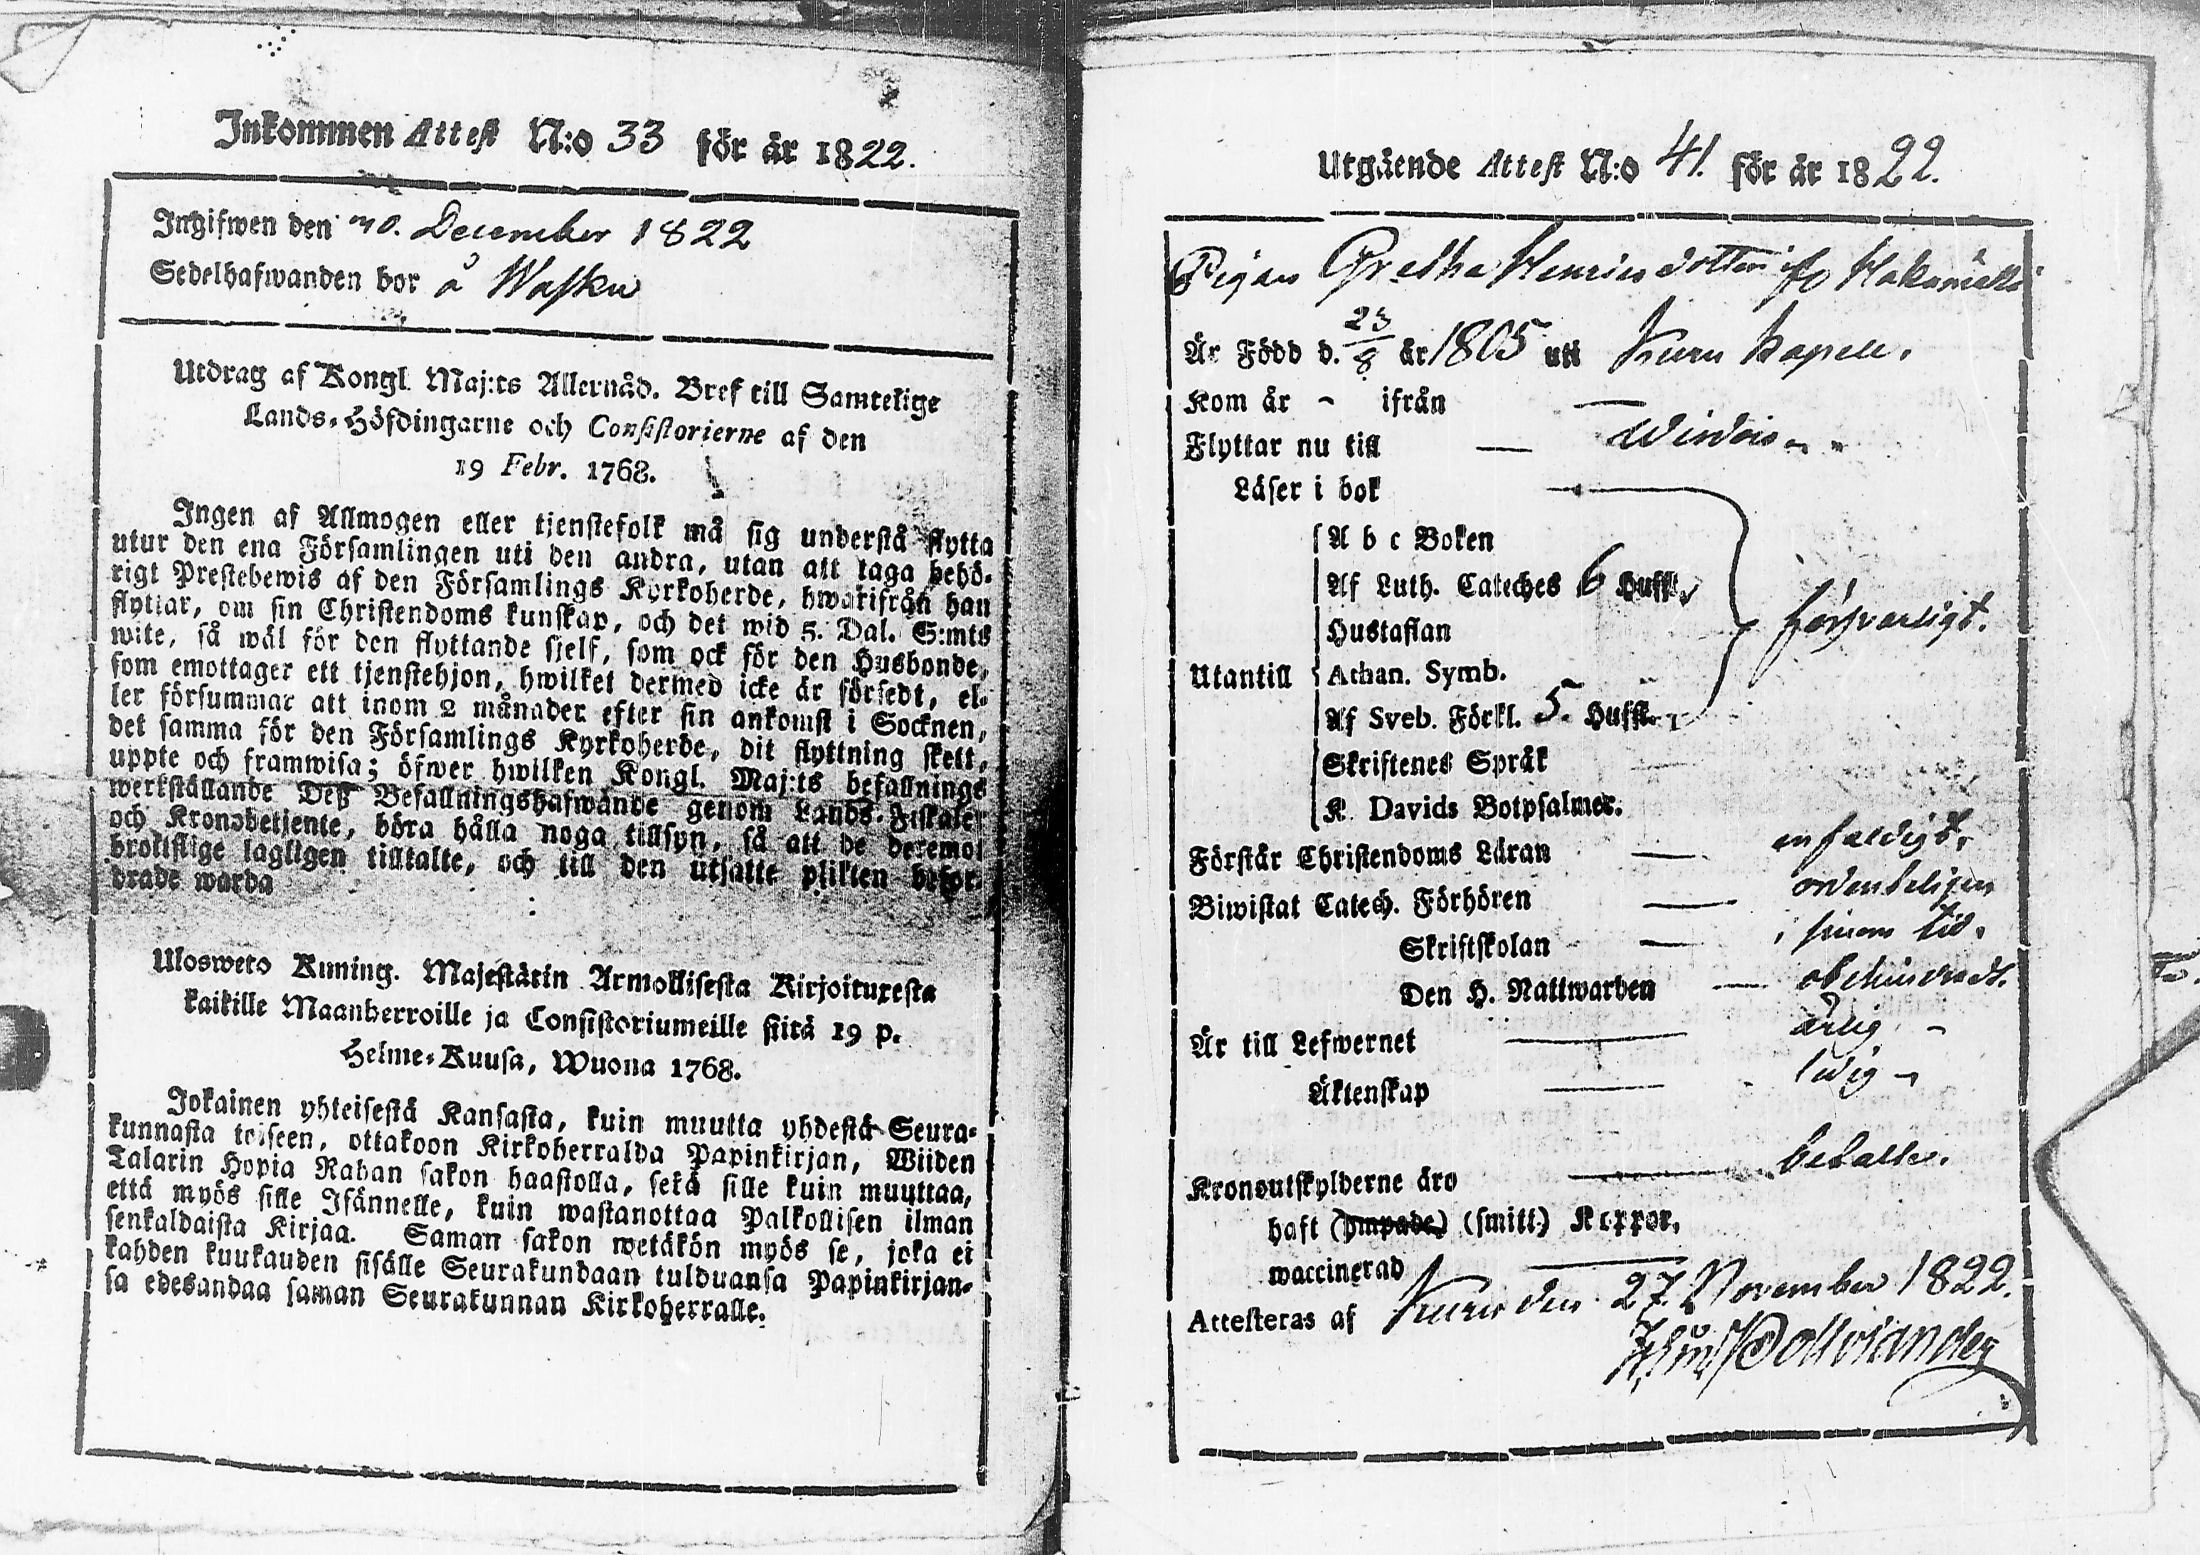 Inkommen Attest N:o 33 för år 1822.
Ingifwen den 30. December 1822
Sedelhafwanden bor å Wasku
Utdrag af Kongl. Maj:ts Allernåd. Bref till Samtelige
Lands-Höfdingarne och Consistorierne af den
19 Febr. 1768.
Ingen af Allmogen eller tjenstefolk må sig understå flytta
utur den ena Församlingen uti den andra, utan att taga behö-
rigt Prestebewis af den Församlings Kyrkoherde, hwarifrån han
flyttar, om sin Christendoms kunskap, och det wid 5. Dal. S:mts
wite, så wäl för den flyttande sjelf, som ock för den Husbonde,
som emottager ett tjenstehjon, hwilket dermed icke är försedt, el-
ler försummar att inom 2 månader efter sin ankomst i Socknen,
det samma för den Församlings Kyrkoherde, dit flyttning skett,
uppte och framwisa; öfwer hwilken Kongl. Maj:ts befallnings
werkställande Deß Befallningshafwande genom Lands-Fiskaler
och Kronobetjente, böra hålla noga tillsyn, så att de deremot
brottslige lagligen tilltalte, och till den utsatte plikten befor-
drade warda
Ulosweto Kuning. Majestätin Armollisesta Kirjoituxesta
kaikille Maanherroille ja Consistoriumeille siitä 19 p.
Helme-Kuusa, Wuona 1768.
Jokainen yhteisestä Kansasta, kuin muutta yhdestä Seura-
kunnasta toiseen, ottakoon Kirkoherralda Papinkirjan, Wiiden
Talarin Hopia Rahan sakon haastolla, sekä sille kuin muuttaa,
että myös sille Isännelle, kuin wastanottaa Palkollisen ilman
senkaldaista Kirjaa. Saman sakon wetäkön myös se, joka ei
kahden kuukauden sisälle Seurakundaan tulduansa Papinkirjan-
sa edesandaa saman Seurakunnan Kirkoherralle.
Utgående Attest N:o 41. för år 1822.
Pigan Gretha Henricsdotter
Är Född d. 23/8 år 1805 uti Kuru Kapell.
Kom år - ifrån —
Flyttar nu till — Wirdois
Läser i bok
Utantill
A b c Boken
Af Luth. Cateches 6 Hufst.
Hustaflan
Athan. Symb.
Af Sveb. Förkl. 5. Hufst.
Skriftenes Språk
K. Davids Botpsalmer.
försvarligt.
Förstår Christendoms Läran — enfaldigt.
Biwistat Catech. Förhören — ordenteligen
Skriftskolan — i sinom tid.
Den H. Nattwarden — obehindradt.
Är till Lefwernet — ärlig
Äktenskap — ledig
Kronoutskylderne äro — betalte.
haft (ympade) (smitt) Koppor,
waccinerad —
Attesteras af Kuru den 27. November 1822.